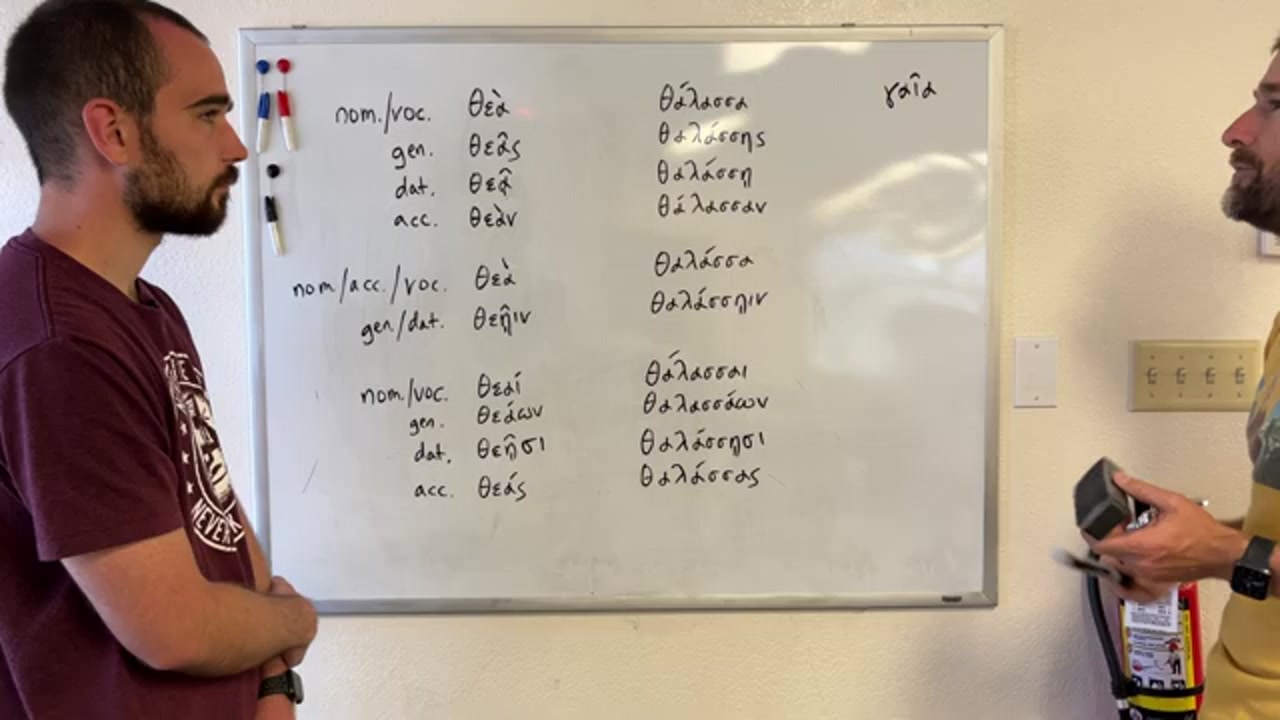 nom./voc. θεὰ θάλασσα γαῖα
gen. θεᾶς θαλάσσης
dat. θεᾷ θαλάσσῃ
acc. θεὰν θάλασσαν
nom/acc./voc. θεὰ θαλάσσα
gen/dat. θεῇιν θαλάσσῃιν
nom/voc. θεαί θάλασσαι
gen. θεάων θαλασσάων
dat. θεῇσι θαλάσσῃσι
acc. θεάς θαλάσσας
NEVER